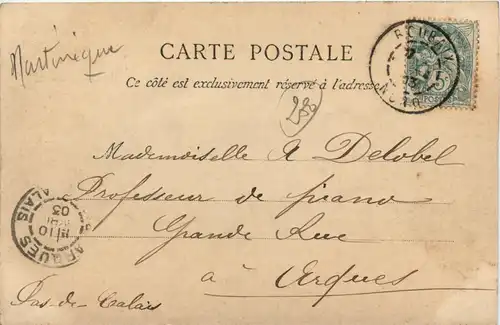 Martinique
CARTE POSTALE
Ce côté est exclusivement réservé à l'adresse
280
ROUBAIX
NORD
5
POSTES
Mademoiselle A Delobel
Professeur de piano
Grande Rue
à Arques
Pas-de-Calais
ARQUES
10
03
CALAIS